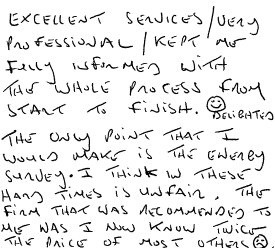 EXCELLENT SERVICES/VERY
PROFESSIONAL/KEPT ME
FULLY INFORMED WITH
THE WHOLE PROCESS FROM
START TO FINISH. ☺
DELIGHTED
THE ONLY POINT THAT I
WOULD MAKE IS THE ENERGY
SURVEY. I THINK IN THESE
HARD TIMES IS UNFAIR. THE
FIRM THAT WAS RECOMMENDED TO
ME WAS I NOW KNOW TWICE
THE PRICE OF MOST OTHERS ☹